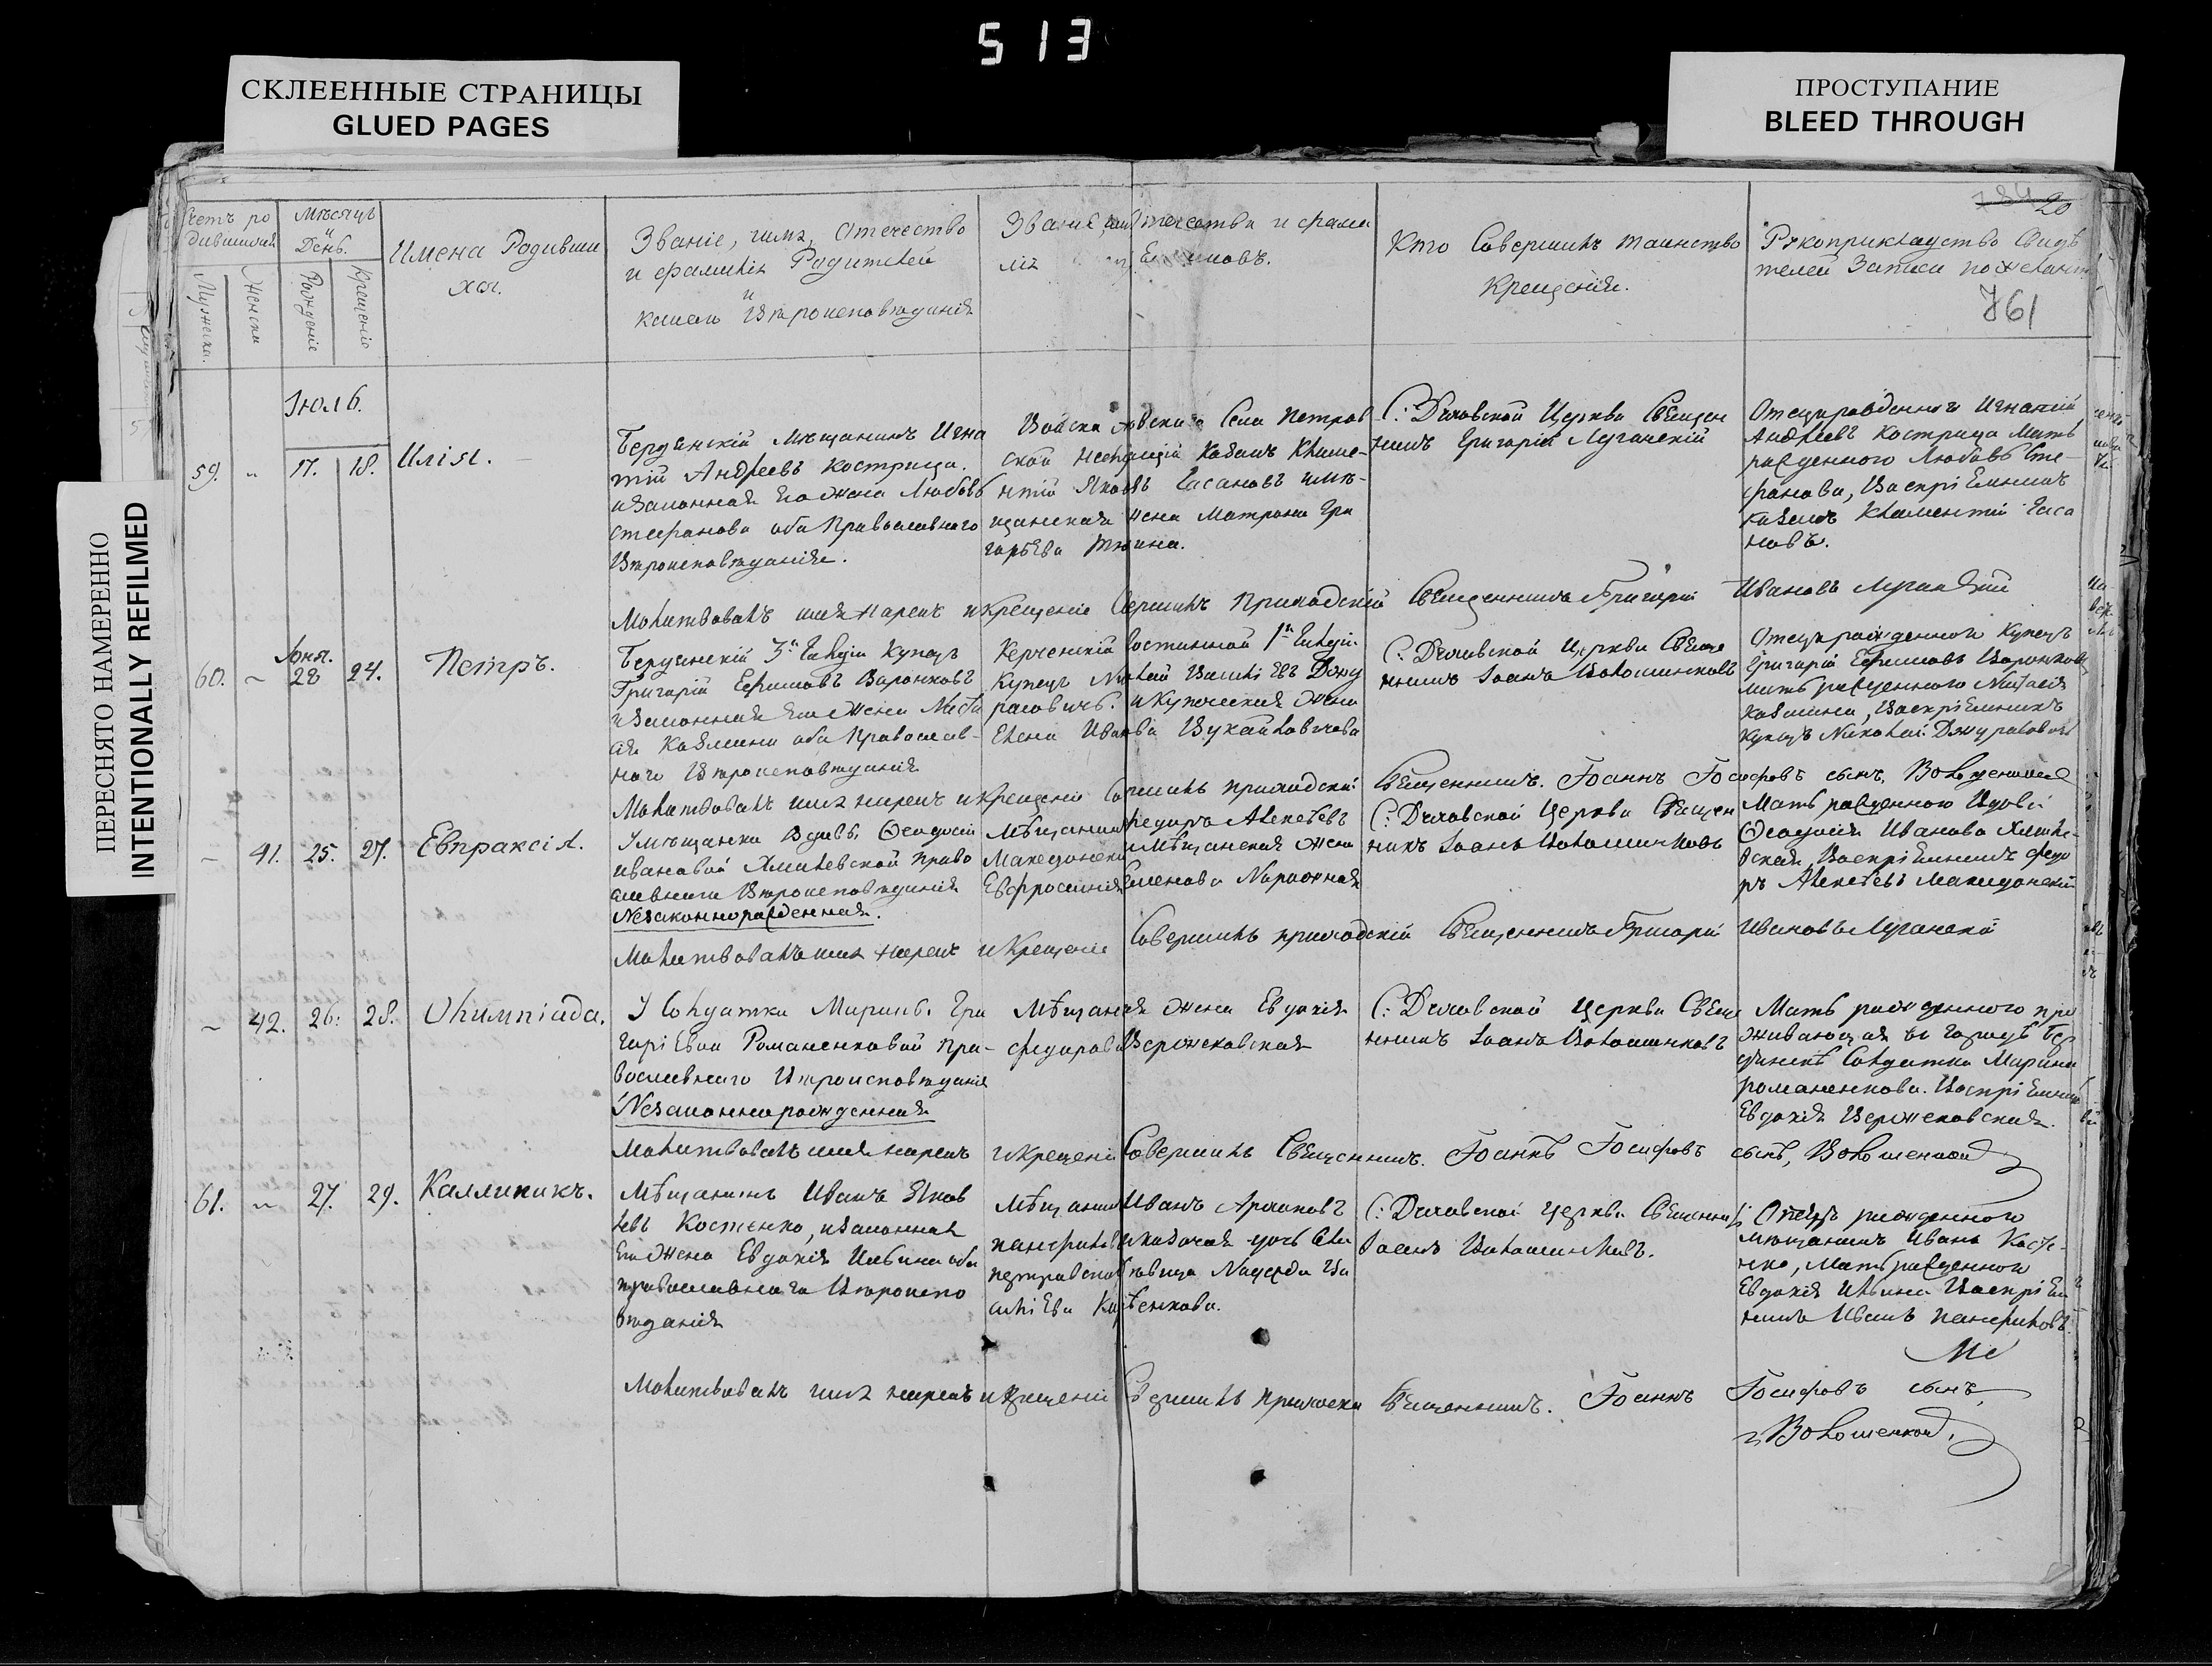 513
СКЛЕЕННЫЕ СТРАНИЦЫ
GLUED PAGES
ПРОСТУПАНИЕ
BLEED THROUGH
ПЕРЕСНЯТО НАМЕРЕННО
INTENTIONALLY REFILMED
20
761
Счетъ ро
дившихся
Мужеска.
Женска
Мѣсяцъ
и
День.
Рожденіе
Крещеніе
Имена Родивши
хся.
Званіе, имя, Отечество
и фамилія Родителей
и
какого Вѣроисповѣданія
Званіе, отечество и фами
лія
Кто Совершилъ таинство
Крещенія.
Рукоприкладство Свидѣ
телей Записи по желанію
Іюль.
59. " 17. 18. Илія.
Бердянскій Мѣщанинъ Игна
тій Андреевъ Кострица.
и Законная Его Жена Любовь
Стефанова оба Православнаго
Вѣроисповѣданія.
Войска Азовскаго Села Петров
ской Казакъ Климе-
нтій Гасановъ и мѣ-
щанская Жена Матрона Гри
горьева
С: Духовской Церкви Священ
никъ Григорій Луганскій
Отецъ рожденнаго Игнатій
Андреевъ Кострица Мать
рожденнаго Любовь Сте-
фанова, Воспріемникъ
Казакъ Климентій Гаса
новъ.
Молитвовалъ имя нарекъ и Крещеніе Совершилъ Приходскій Священникъ Григорій Ивановъ Луганскій
60. ~ Іюня. 28 24. Петръ.
Бердянскій 3й Гильдіи Купецъ
Григорій Ефимовъ Воронковъ
и Законная Его Жена Ната
лія Козмина оба Православ-
наго Вѣроисповѣданія
Керченскій 1й Гильдіи
Купецъ Николай Васильевъ Джу
раговичъ. и Купеческая Жена
Елена Иванова Вукайловичова
С: Духовской Церкви Свяще
нникъ Іоанъ Волошинковъ
Отецъ рожденнаго Купецъ
Григорій Ефимовъ Воронковъ
мать рожденнаго Наталія
Козмина, Воспріемникъ
Купецъ Николай
Молитвовалъ имя нарекъ и Крещеніе Совершилъ приходскій Священникъ. Іоаннъ Іосифовъ сынъ, Волошенковъ
~ 41. 25. 27. Евпраксія.
У мѣщанки Вдовы Ѳеодосіи
Ивановой Хмилевской право
славнаго Вѣроисповѣданія
Незаконнорожденная.
Мѣщанинъ Федоръ Алексѣевъ
Македонскій и Мѣщанская Жена
Евфросинія Семенова
С: Духовской Церкви Священ
никъ Іоанъ Волошинковъ
Мать рожденнаго Вдова
Ѳеодосія Иванова Хмиле-
вская, Воспріемникъ Федо
ръ Алексѣевъ Македонскій
Молитвовалъ имя нарекъ и Крещеніе Совершилъ приходскій Священникъ Григорій Ивановъ Луганскій
~ 42. 26. 28. Олимпіада.
У Солдатки Марины Гри
горіевой Романенковой пра-
вославнаго Вѣроисповѣданія
Незаконнорожденная
Мѣщанская Жена Евдокія
Федорова Вержековская
С: Духовской Церкви Свяще
нникъ Іоанъ Волошинковъ
Мать рожденнаго про
живающая въ городѣ Бер
дянскѣ Солдатка Марина
романенкова. Воспріемница
Евдокія Вержековская.
Молитвовалъ имя нарекъ и крещеніе Совершилъ Священникъ. Іоаннъ Іосифовъ сынъ, Волошенковъ
61. ~ 27. 29. Каллиникъ.
Мѣщанинъ Иванъ Яков
левъ Костенко, и Законная
Его Жена Евдокія Ильина оба
православнаго Вѣроиспо
вѣданія
Мѣщанинъ Иванъ
панфиловъ и козачая дочь
петровской Надежда Ва
силіева
С: Духовской Церкви Священникъ
Іоанъ Волошинковъ.
Отецъ рожденнаго
мѣщанинъ Иванъ Косте-
нко, Мать рожденнаго
Евдокія Ильина Воспріем
никъ Иванъ панфиловъ.
Молитвовалъ имя нарекъ и крещеніе Совершилъ приходскій Священникъ. Іоаннъ Іосифовъ сынъ,
Волошенковъ.